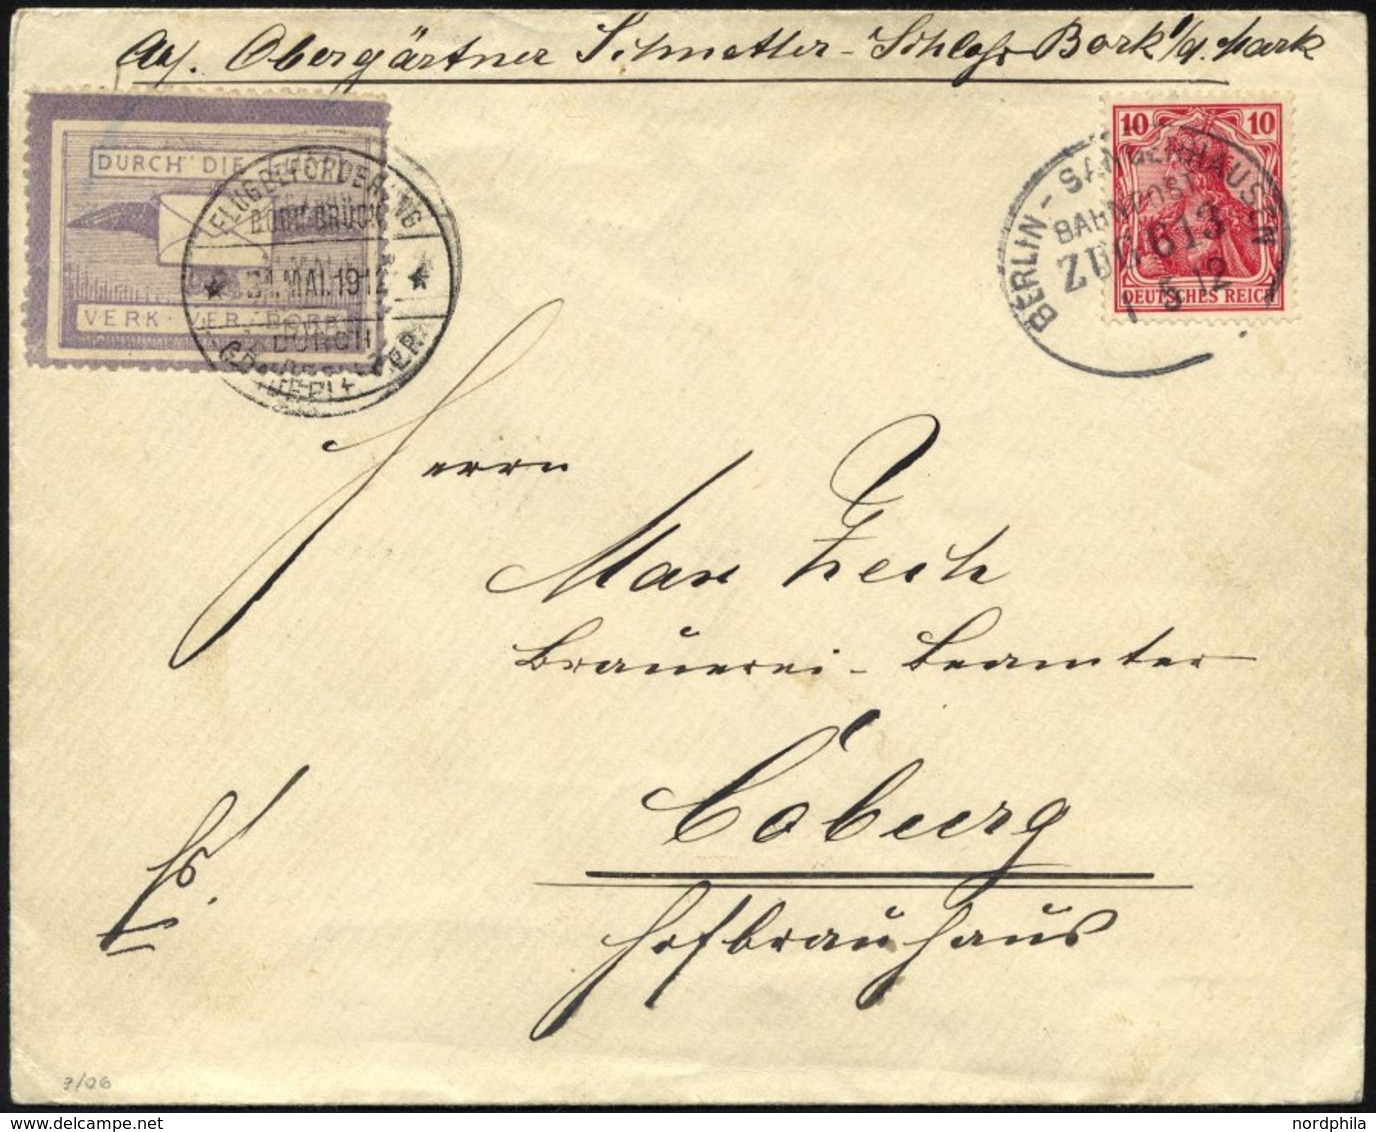 Abs. Obergärtner Schmetter - Schloss Bork i/d. Mark
DURCH DIE
VERK. VERBOR
FLUGBEFÖRDERUNG
BORK-BRÜCK
31.MAI.1912
DURCH
10 10
DEUTSCHES REICH
BERLIN - SANGERHAUSEN
BAHNPOST
ZUG 613
1 5 12
Herrn
Max Zech
Brauerei-Beamter
Coburg
Hofbrauhaus
Fr.
7/06
nordphila